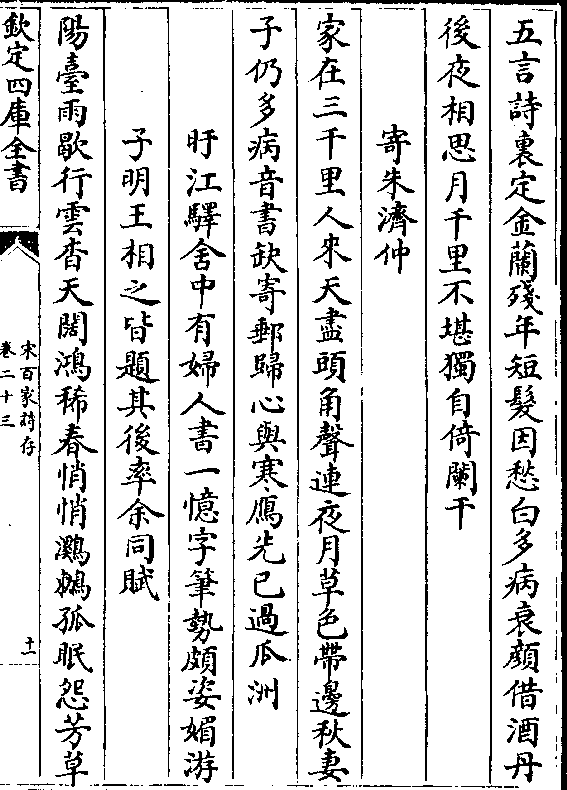 五言詩裏定金蘭殘年短髮因愁白多病衰顔借酒丹
後夜相思月千里不堪獨自倚闌干
寄朱濟仲
家在三千里人來天盡頭角聲連夜月草色帶邊秋妻
子仍多病音書缺寄郵歸心與寒鴈先已過瓜洲
盱江驛舍中有婦人書一憶字筆勢頗姿媚游
子明王相之皆題其後率余同賦
陽臺雨歇行雲杳天闊鴻稀春悄悄鸂鶒孤眠怨芳草
欽定四庫全書
宋百家詩存
卷二十三
十一